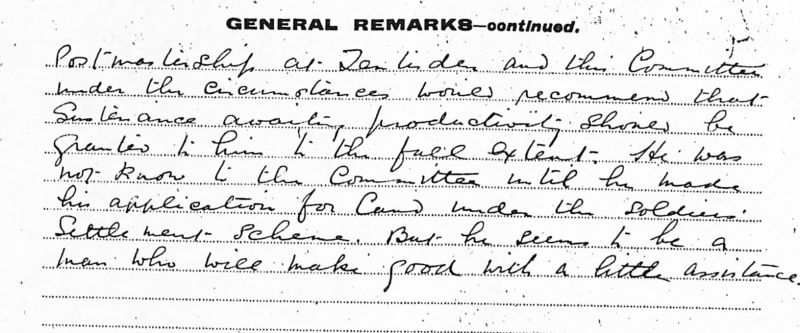 GENERAL REMARKS—continued.
Postmastership at Ten and this Committee
under the circumstances would recommend that
Sustenance awaiting productivity should be
granted to him to the full extent. He was
not know to the Committee until he made
his application for Land under the Soldiers'
Settlement Scheme. But he seems to be a
man who will make good with a little assistance.